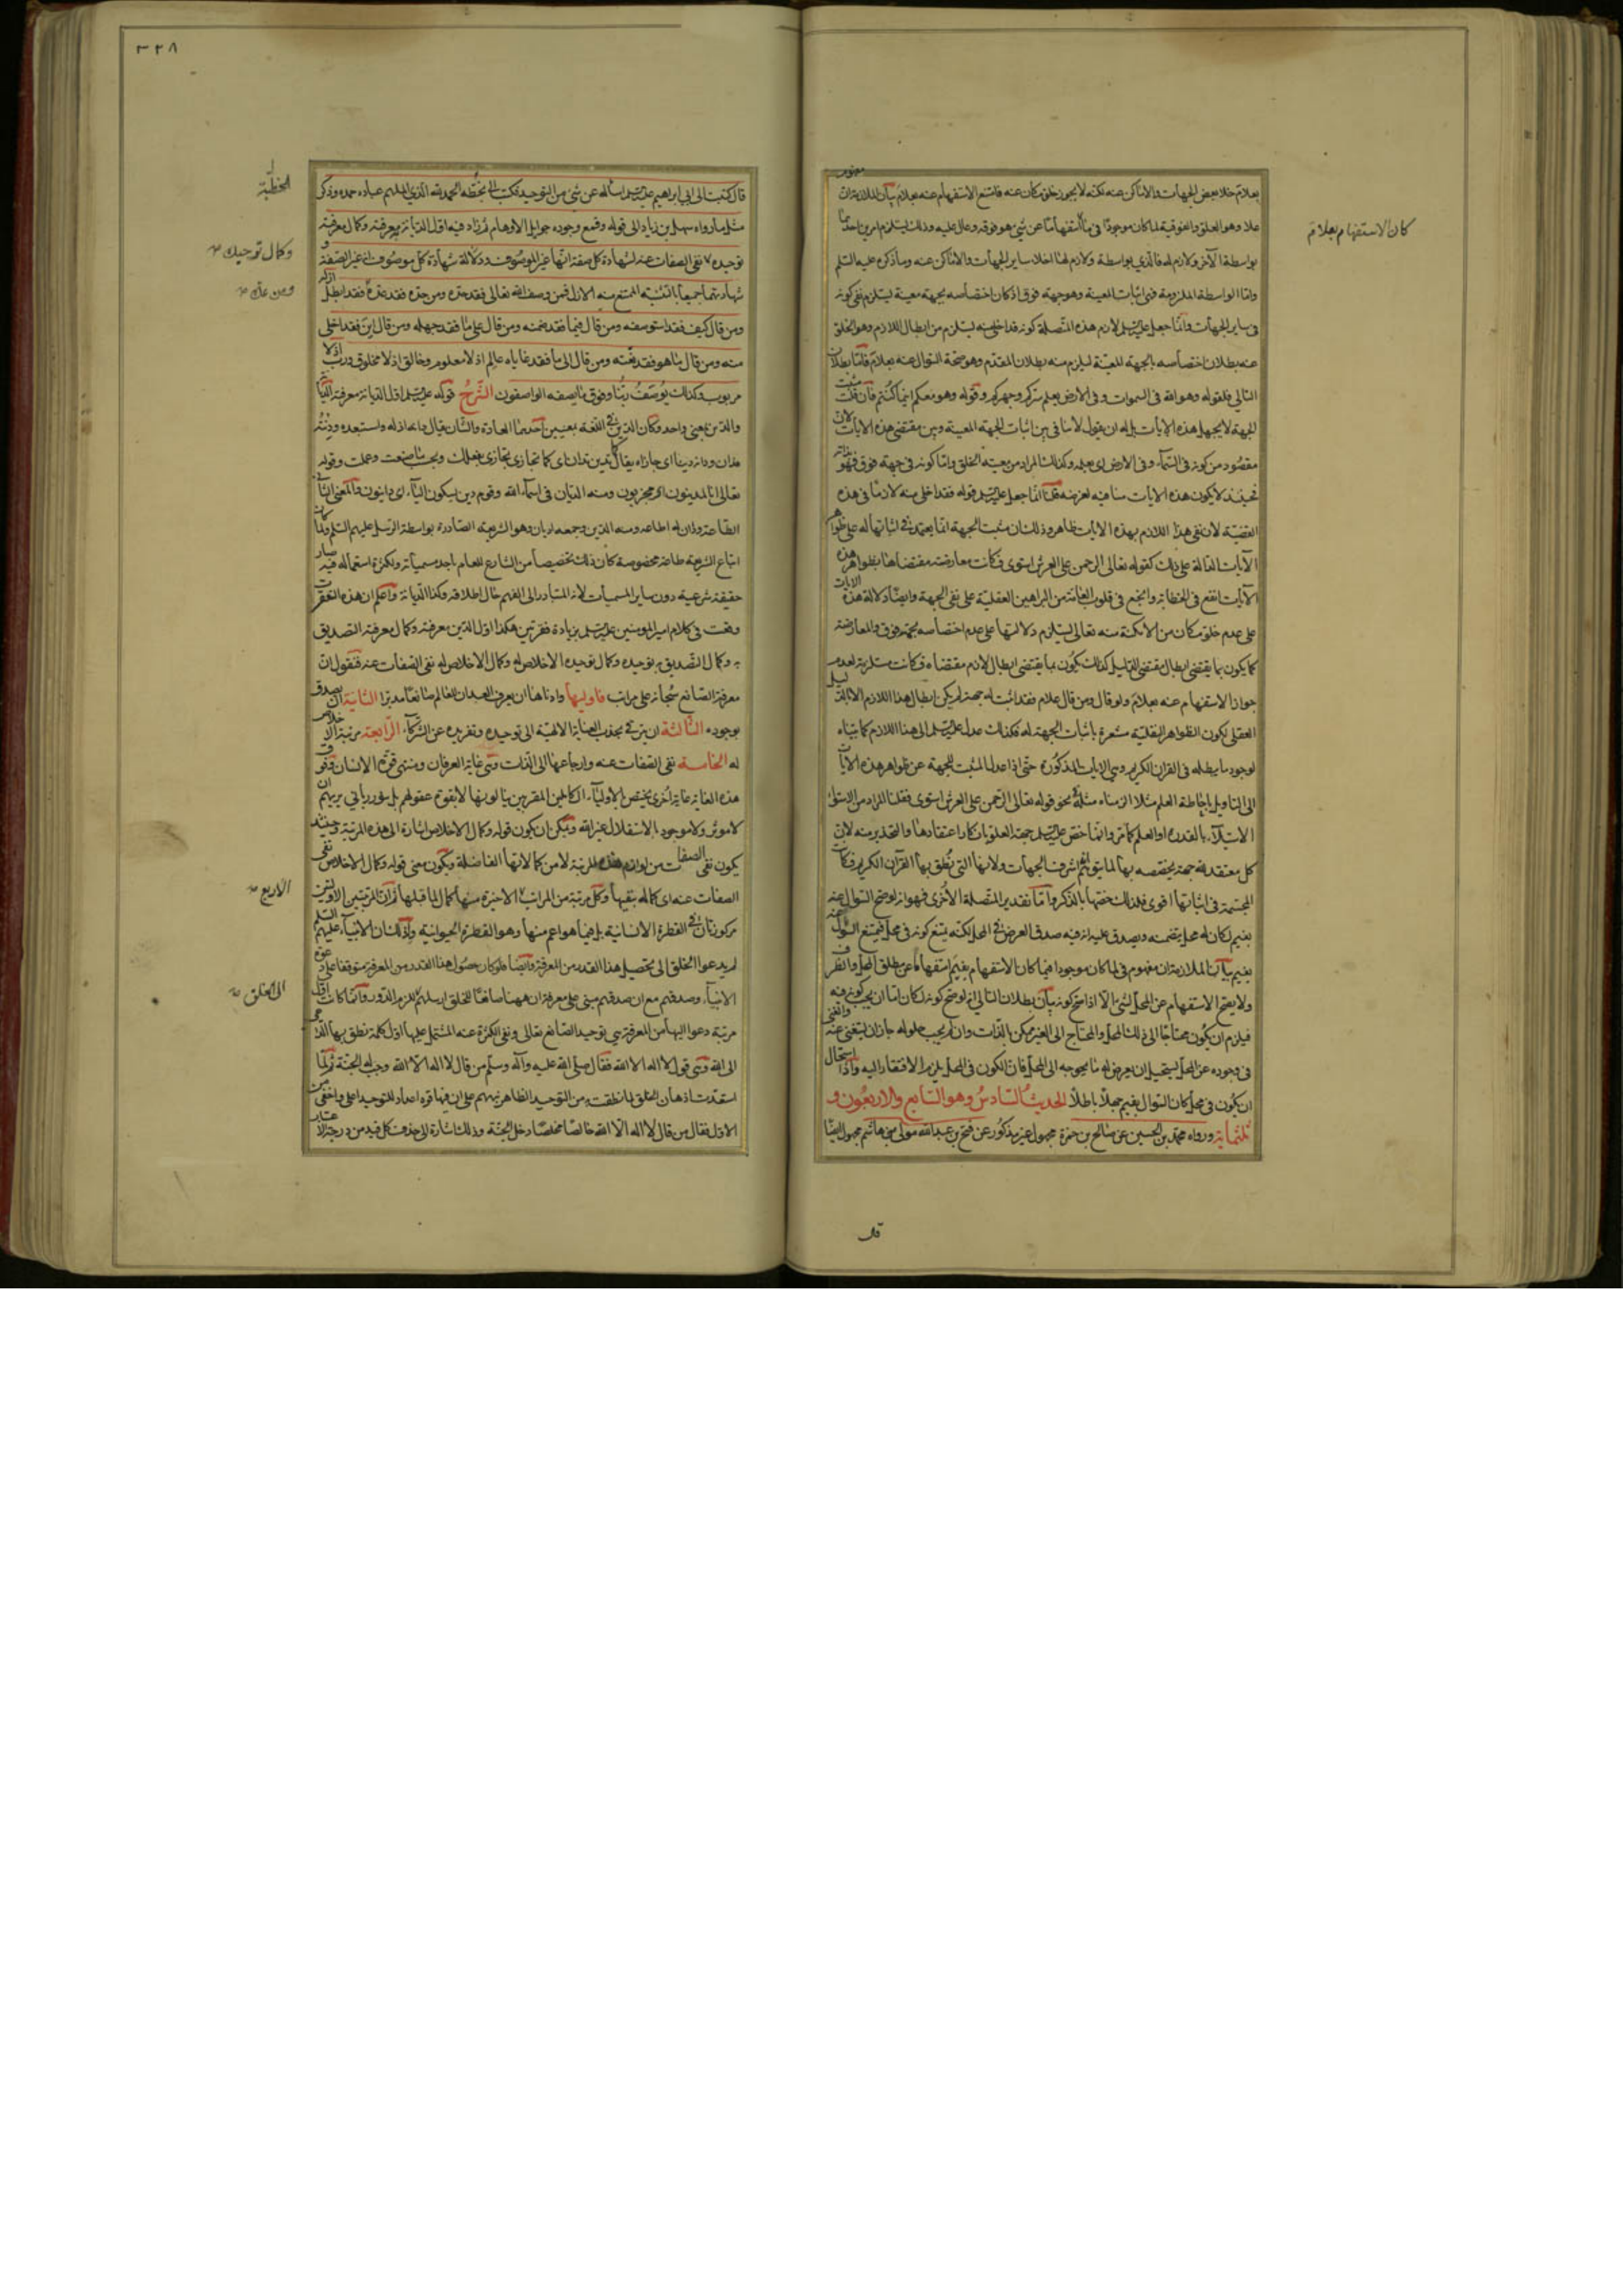 بعلام خلا بعض الجهات والاماكن عنه لكنه لا يجوز خلو مكان عنه فامتنع الاستفهام عنه بعلام بيان الملازمة ان
كان الاستفهام بعلام
علا وهو العلو والفوقية فلما كان موجودا في ما استفهاما عن شئ هو فوقه وعال عليه وذلك يستلزم امرين احدهما
بواسطة الآخر ولازم له فالذي بواسطة ولازم هنا اخلا ساير الجهات والاماكن عنه وما ذكره عليه السلم
واما الواسطة الملزومة فهى اثبات الجهة المعينة وهو جهة فوق اذ كان اختصاصه بجهة معينة يستلزم نفى كونه
فى ساير الجهات وانما جعل عليه السلم لازم هذه المتصلة كونه قد اخلى منه ليستلزم من ابطال اللازم وهو الخلو
عنه بطلان اختصاصه بالجهة المعينة ليلزم منه بطلان المقدم وهو صحة السوال عنه بعلام فاما بطلان
التالى فلقوله وهو الله فى السموات وفى الارض يعلم سركم وجهركم وقوله وهو معكم اينما كنتم فان قلت مثبت
الجهة لا يجهل هذه الايات بل له ان يقول لا منافى بين اثبات الجهة المعينة وبين مقتضى هذه الايات لان
مقصود من كونه فى السماء وفى الارض اى بعلمه وكذلك المراد من معية الخلق واما كونه فى جهة فوق فهو بذاته
فحينئذ لا يكون هذه الايات منافية لغرضه قلنا انما جعل عليه السلم قوله فقد اخلى منه لازما فى هذه
القضية لان نفى هذا اللازم بهذه الايات ظاهر وذلك ان مثبت الجهة انما يعتمد فى اثباتها له على ظواهر
الآيات الدالة على ذلك كقوله تعالى الرحمن على العرش استوى فكانت معارضة مقتضاها بظواهر هذه
الآيات انفع فى الخطابة وانجع فى قلوب العامة من البراهين العقلية على نفى الجهة وايضا دلالة هذه الايات
على عدم خلو مكان من الامكنة منه تعالى يستلزم دلالتها على عدم اختصاصه بجهة فوق والمعارضة
كما يكون بما يقتضى ابطال مقتضى الدليل كذلك يكون بما يقتضى ابطال لازم مقتضاه فكانت مستلزمة لعدم
جواز الاستفهام عنه بعلام ولو قال ومن قال علام فقد اثبت له جهة لم يكن ابطال هذا اللازم الا بالدليل
العقلى لكون الظواهر النقلية مشعرة باثبات الجهة له فكذلك عدل عليه السلم الى هذا اللازم كما بيناه
لوجود ما يبطله فى القران الكريم وهى الايات المذكورة حتى اذا عدل المثبت للجهة عن ظواهر هذه الايات
الى التاويل باحاطة العلم مثلا الزمناه مثله فى نحو قوله تعالى الرحمن على العرش استوى فقلنا المراد من الاستواء
الاستيلاء بالقدرة او العلم كما مر وانما خص عليه السلم جهة العلو بانكار اعتقادها والتحذير منه لان
كل معتقد لله جهة يخصصه بها لما يتوهم انها اشرف الجهات ولانها التى نطق بها القرآن الكريم فكانت
المجسمة فى اثباتها اقوى فلذلك خصها بالذكر واما تقدير المتصلة الاخرى فهو انه لو صح السوال عنه
بفيم لكان له محل يتضمنه ويصدق عليه انه فيه صدق العرض فى المحل لكنه يمتنع كونه فى محل فيمتنع السؤال عنه
بفيم بيان الملازمة ان مفهوم فى لما كان موجودا فيما كان الاستفهام بفيم استفهاما عن مطلق المحل والظرف
ولا يصح الاستفهام عن المحل لشئ الا اذا صح كونه فيه بيان بطلان التالى انه لو صح كونه لكان اما ان يجب كونه فيه
فيلزم ان يكون محتاجا الى ذلك المحل والمحتاج الى الغير ممكن بالذات وان لم يجب حلوله جاز ان يستغنى عنه والغنى
فى وجوده عن المحل يستحيل ان يعرض له ما يحوجه الى المحل فان الكون فى المحل يلزمه الافتقار اليه واذا استحال
ان يكون فى محل كان السوال بفيم جهلا باطلا الحديث السادس وهو السابع والاربعون و
ثلثمائة ورواه محمد بن الحسين عن صالح بن حمزة مجهول غير مذكور عن فتح بن عبد الله مولى بنى هاشم مجهول ايضا
قال
٣٢٨
قال كتبت الى ابى ابراهيم عليه السلم اساله عن شئ من التوحيد فكتب الى بخطه الحمد لله الذى الملهم عباده حمده وذكر
الخطبة
مثل ما رواه سهل بن زياد الى قوله وقمع وجوده جوايل الاوهام ثم زاد فيه اول الديانة به معرفته وكمال معرفته
وكمال توحيده
توحيده نفى الصفات عنه لشهادة كل صفة انها غير الموصوف ودلالة شهادة كل موصوف انه غير الصفة و
ومن عده
شهادتهما جميعا بالتثنية الممتنع منه الازل فمن وصف الله تعالى فقد حده ومن حده فقد عده فقد ابطل ازله
ومن قال كيف فقد استوصفه ومن قال فيما فقد ضمنه ومن قال على ما فقد جهله ومن قال اين فقد اخلى
منه ومن قال ما هو فقد نعته ومن قال الى ما فقد غاياه عالم اذ لا معلوم وخالق اذ لا مخلوق ورب اذ لا
مربوب وكذلك يوصف ربنا وفوق ما يصفه الواصفون الشرح قوله عليه السلم اول الديانة معرفته الديانة
والدين بمعنى واحد وكان الدين فى اللغة بمعنيين احدهما العادة والشان يقال دانه اذله واستعبده ودنته
فدان ودانه دينا اى جازاه يقال كما تدين تدان اى كما تجازى تجازى بفعلك وبحسب ما صنعت وعملت وقوله
تعالى انا لمدينون اى مجزيون ومنه الديان فى اسماء الله وقوم دين بسكون الياء اى داينون والمعنى الثانى
الطاعة ودان له اطاعه ومنه الدين وجمعه اديان وهو الشريعة الصادرة بواسطة الرسل عليهم السلم ولما كان
اتباع الشريعة طاعة مخصوصة كان ذلك تخصيصا من الشارع للعام باحد مسمياته ولكثرة استعماله فيه صار
حقيقة شرعية دون ساير المسميات لانه المتبادر الى الفهم حال اطلاقه وكذا الديانة واعلم ان هذه الفقرات
وقعت فى كلام امير المومنين عليه السلم بزيادة فقرتين هكذا اول الدين معرفته وكمال معرفته التصديق
به وكمال التصديق به توحيده وكمال توحيده الاخلاص له وكمال الاخلاص له نفى الصفات عنه فنقول ان
معرفة الصانع سبحانه على مراتب فاوليها وادناها ان يعرف العبد ان للعالم صانعا مدبرا الثانية ان يصدق
بوجوده الثالثة ان يترقى بجذب العناية الالهية الى توحيده وتفريده عن الشركاء الرابعة مرتبة الاخلاص
له الخامسة نفى الصفات عنه وارجاعها الى الذات وهى غاية العرفان ومنتهى قوة الانسان وفوق
هذه الغاية غاية اخرى يختص بالاولياء الكاملين المقربين ينالونها لا بقوة عقولهم بل بنور ربانى يريهم ان
لا موثر ولا موجود بالاستقلال غير الله ويمكن ان يكون قوله وكمال الاخلاص اشارة الى هذه المرتبة وحينئذ
يكون نفى الصفات من لوازم هذه المرتبة لا من كمالاتها الفاضلة ويكون معنى قوله وكمال الاخلاص نفى
الاربع
الصفات عنه اى كماله بنفيها وكل مرتبة من المراتب الاخيرة منها كمال لما قبلها ثم ان المرتبتين الاوليين
مركوزتان فى الفطرة الانسانية بل فيما هو اعم منها وهو الفطرة الحيوانية ولذلك ان الانبياء عليهم السلم
لم يدعوا الخلق الى تحصيل هذا القدر من المعرفة وايضا فلو كان حصول هذا القدر من المعرفة متوقفا على دعوة
الى الخلق
الانبياء وصدقهم مع ان صدقهم مبنى على معرفة ان ههنا صانعا للخلق ارسلهم للزم الدور وانما كانت اول
مرتبة دعوا اليها من المعرفة هى توحيد الصانع تعالى ونفى الكثرة عنه المشتمل عليها اول كلمة نطق بها الداعى
الى الله وهى قول لا اله الا الله فقال صلى الله عليه وآله وسلم من قال لا اله الا الله وجب له الجنة ثم لما
استعدت اذهان الخلق لما نطقت به من التوحيد الظاهر نبههم على ان فيها قوة اعداد للتوحيد اعلى واخفى من
الاول فقال من قال لا اله الا الله خالصا مخلصا دخل الجنة وذلك اشارة الى حذف كل قيد من درجة الاعتبار